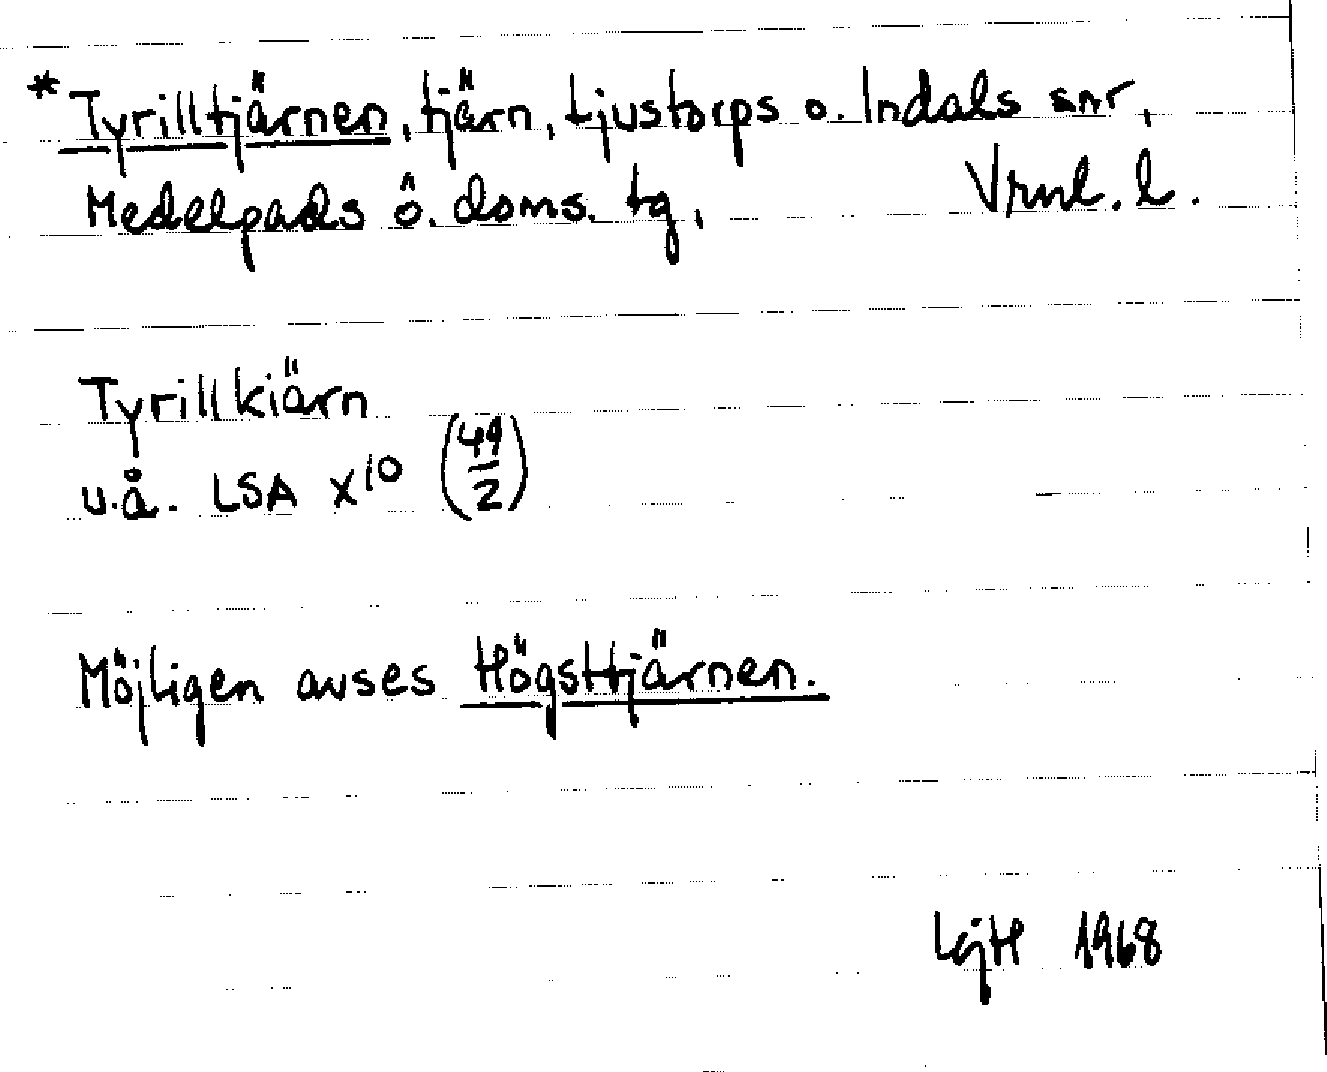 *Tyrilltjärnen, tjärn, Ljustorps o. Indals snr,
Medelpads ö. doms. tg, Vrnl. l.
Tyrillkiärn
u.å. LSA X10 (49/2)
Möjligen avses Högsttjärnen.
LgH 1968